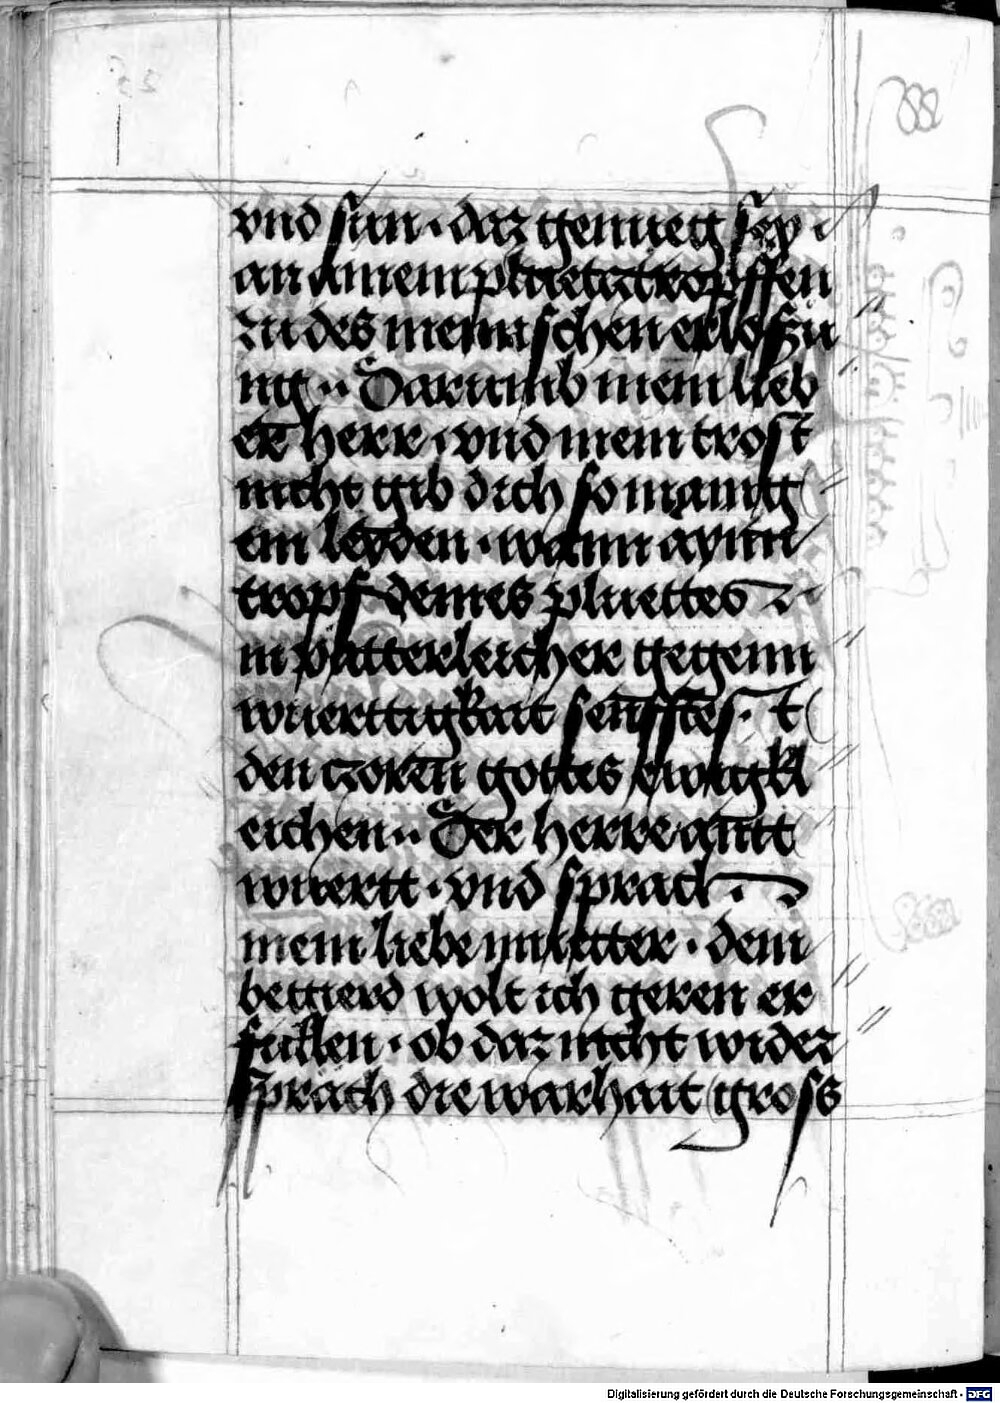 vnd sun · daz genueg sey ·
an ainem pluetztropffen
zu des mennschen erloszu
ng ·· Darumb mein lieb
er herr · vnd mein trost
nicht gib dich so manig
em leyden · wann aynn
tropf deines pluettes
in vatterleicher gegenn
wuerttigkait senfftes · t
den zoren gottes ewigkl
eichen ·· Der herre antt
wuertt · vnd sprach ·
mein liebe muetter · dein
begierd wolt ich geren er
fullen · ob daz nicht wider
sprach die warhait gross
Digitalisierung gefördert durch die Deutsche Forschungsgemeinschaft - DFG